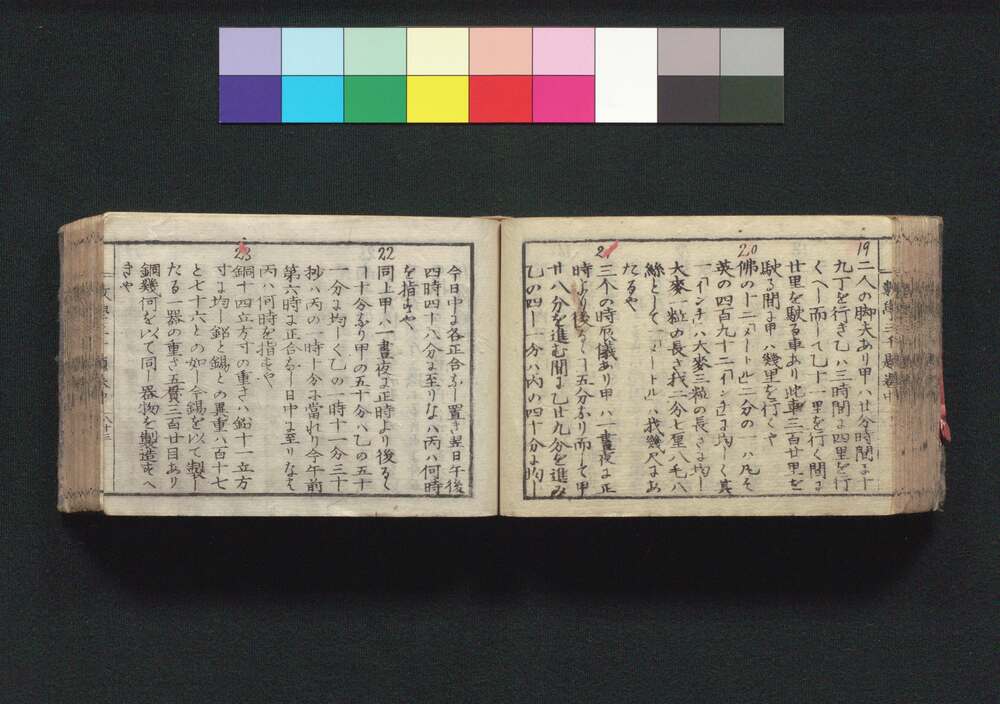 19
二人の脚夫あり甲ハ廿分時間に十
九丁を行き乙ハ三時間に四里を行
くへし而して乙十一里を行く間に
廿里を駛る車あり此車三百廿里を
駛る間に甲ハ幾里を行くや
20
佛の十二メートル二分の一ハ凡そ
英の四百九十二インチに均しく其
一インチハ大麥三粒の長さに均し
大麥一粒の長さ我二分七厘八毛八
絲として一メートルハ我幾尺にあ
たるや
21
三个の時辰儀あり甲ハ一晝夜に正
時より後るゝ十五分なり而して甲
廿八分を進む間に乙廿九分を進み
乙の四十一分ハ丙の四十分に均し
今日中に各正合なし置き翌日午後
四時四十八分に至りなハ丙ハ何時
を指すや
22
同上甲ハ一晝夜に正時より後るゝ
十分なり甲の五十分ハ乙の五十
一分に均しく乙の一時十一分三十
抄ハ丙の一時十分に當れり今午前
第六時に正合なし日中に至りなは
丙ハ何時を指すや
23
銅十四立方寸の重さハ鉛十一立方
寸に均し鉛と錫との異重ハ百十七
と七十六との如し今錫を以て製し
たる一器の重さ五貫三百廿目あり
銅幾何を以て同し器物を製造すへ
きや